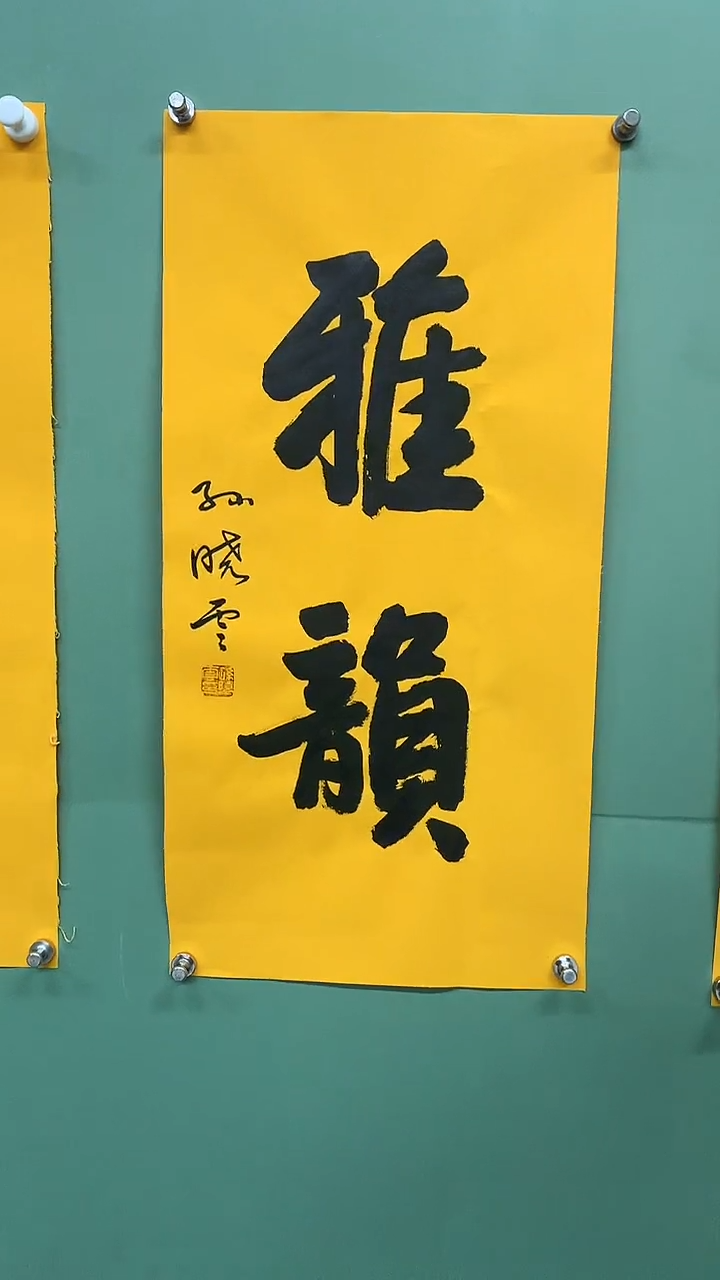 雅韻
孙晓雲